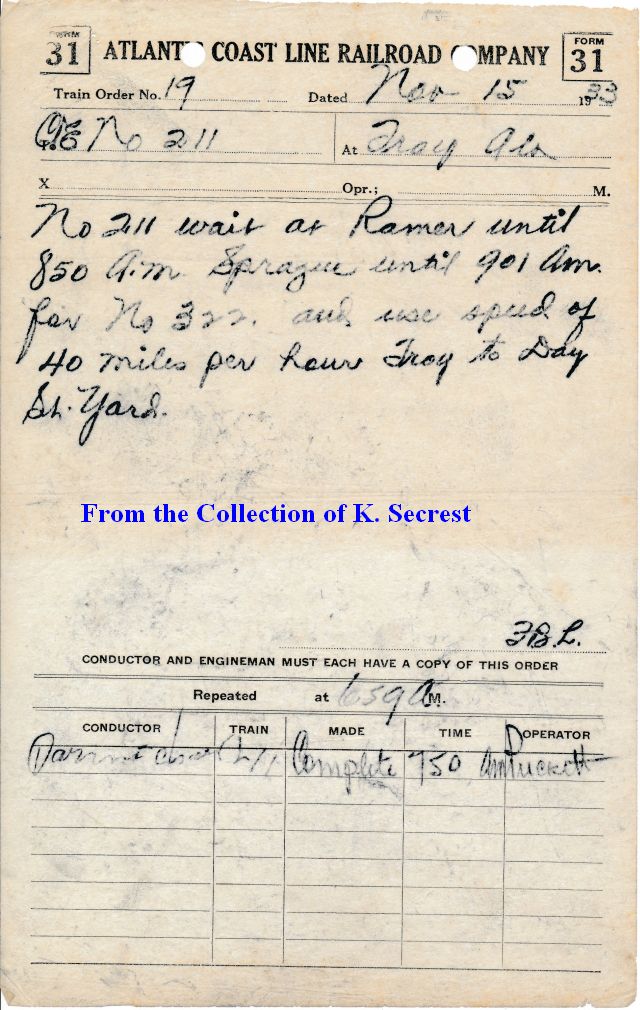 FORM 31 ATLANTIC COAST LINE RAILROAD COMPANY FORM 31
Train Order No. 19 Dated Nov 15 1933
C&E No 211 At Troy Ala
X Opr.; M.
No 211 wait at Ramer until
850 A.M. Sprague until 901 Am.
for No 322. and use speed of
40 miles per hour Troy to Day
St. Yard.
From the Collection of K. Secrest
CONDUCTOR AND ENGINEMAN MUST EACH HAVE A COPY OF THIS ORDER
Repeated at 659 A M.
CONDUCTOR TRAIN MADE TIME OPERATOR
Complete 750 Am Puckett